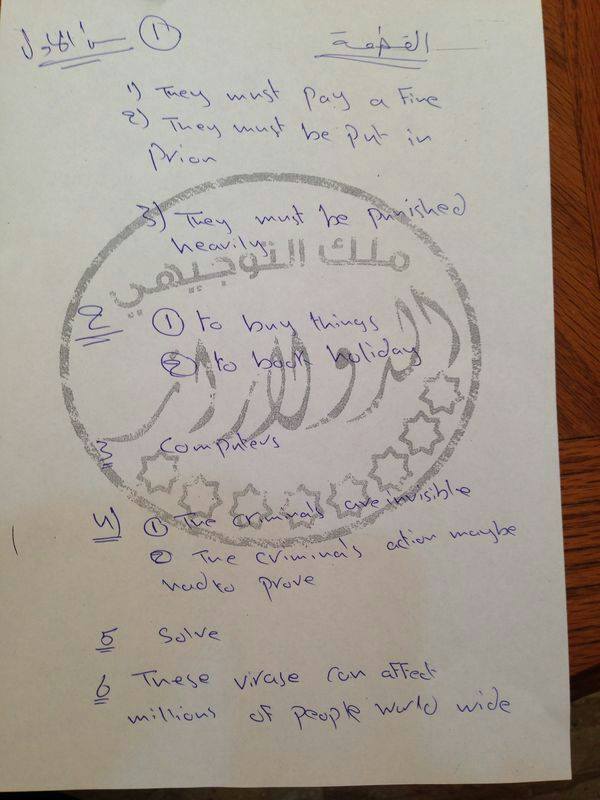 القطعة
① 
1) They must pay a Fine
2) They must be put in
prion
3) They must be punished
heavily
ملك التوجيهي
الدولارار
2 ① to buy things
② to book holiday
3 Computers
4) ① The criminals are invisible
② The criminals action maybe
hadto prove
5 Solve
6 These virase can affect
millions of people world wide